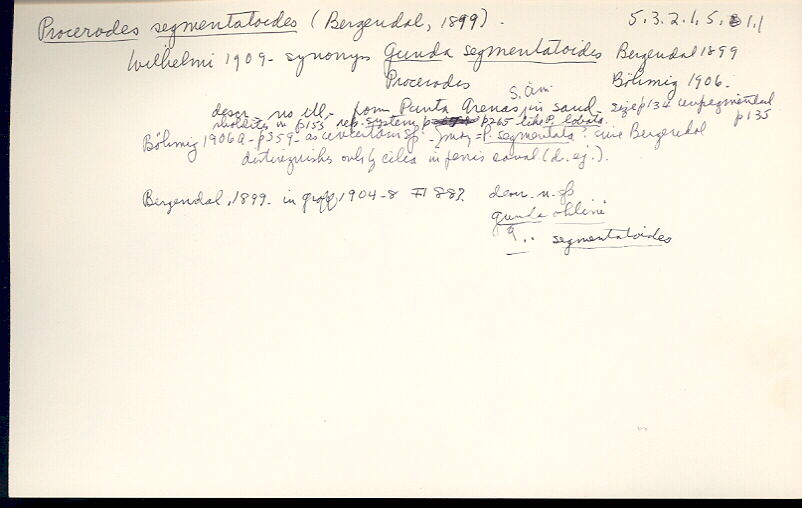 Procerodes segmentatoides (Bergendal, 1899). 5.3.2.1.5.1.1
Wilhelmi 1909 - synonyms Gunda segmentatoides Bergendal 1899
Procerodes Böhmig 1906.
S. Am.
descr - no ill. - from Punta Arenas, in sand - size p134 p135
in p153 rep. system p265 like P. lobata.
Böhmig 1906a - p359 - as uncertain sp. - may = P. segmentata? since Bergendal
distinguishes only by cilia in penis canal (d. ej.).
Bergendal, 1899 - in 1904-8 descr. n. sp
gunda ohlini
G. .. segmentatoides